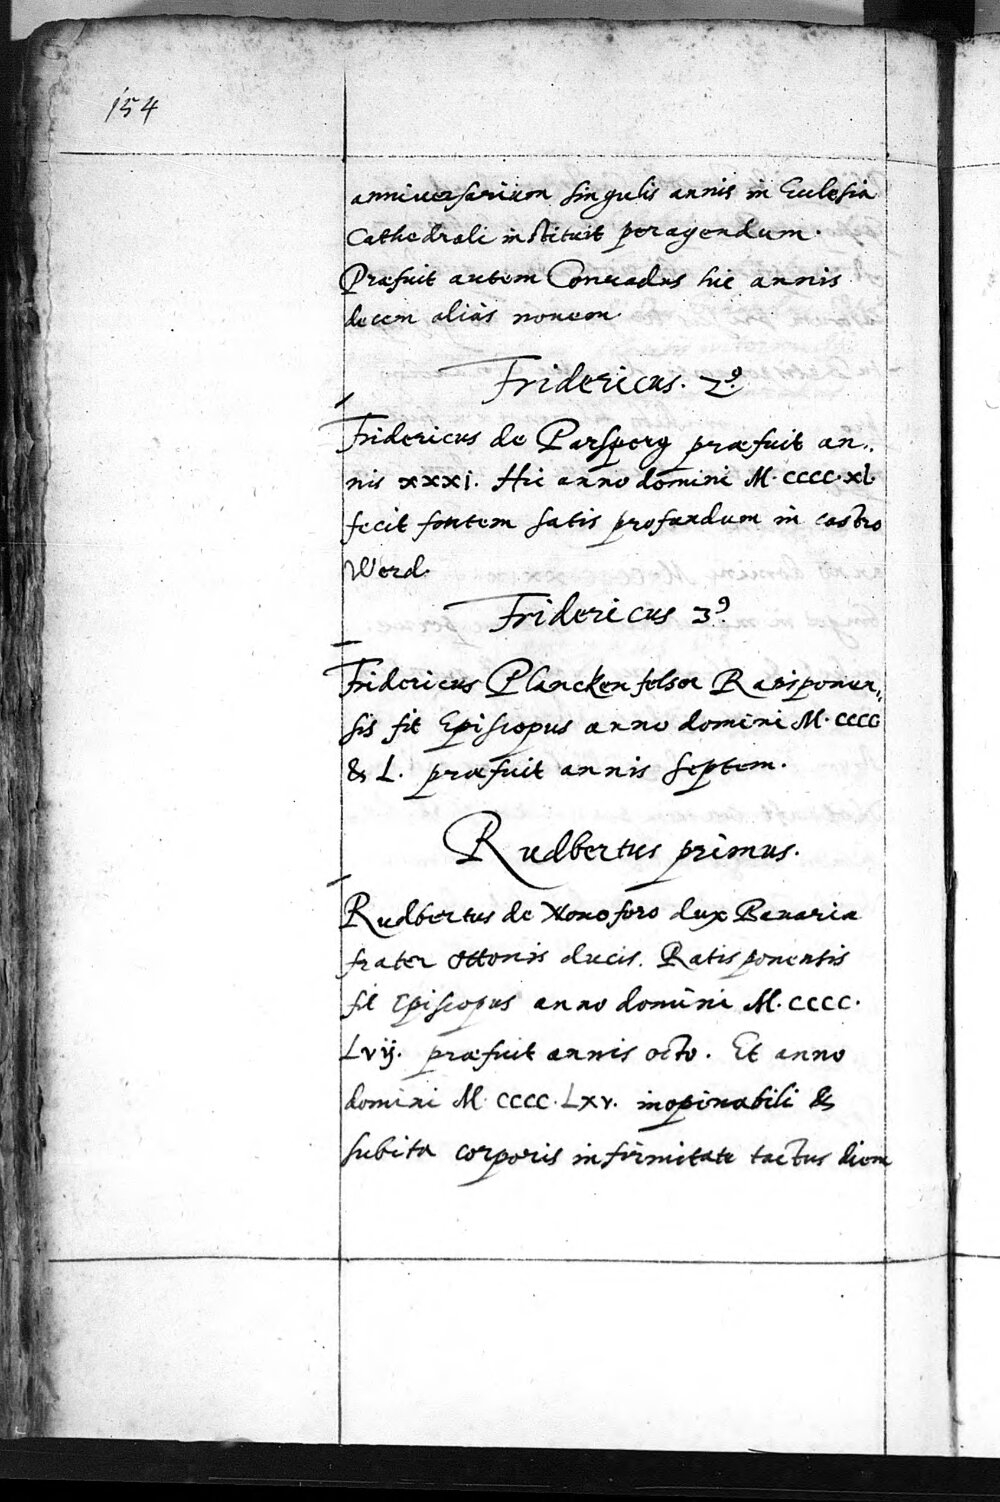 154
anniuersarium singulis annis in Eculesia
Cathedrali instituit peragendum.
Præfuit autem Conradus hic annis
decem aliàs nouem.
Fridericus. 2º.
Fridericus de Parsperg præfuit an„
nis xxxi. Hic anno domini M. CCCC. xl.
fecit fontem satis profundum in castro
Werd.
Fridericus 3º.
Fridericus Planckenfelser Ratisponen„
sis fit Episcopus anno domini M. CCCC
& L. præfuit annis septem.
Rudbertus primus.
Rudbertus de Nonoforo dux Bauaria
frater Ottonis ducis. Ratisponensis
fit Episcopus anno domini M. CCCC.
Lvij. præfuit annis octo. Et anno
domini M CCCC. Lxv. inopinabili &
subita corporis infirmitate tactus diem